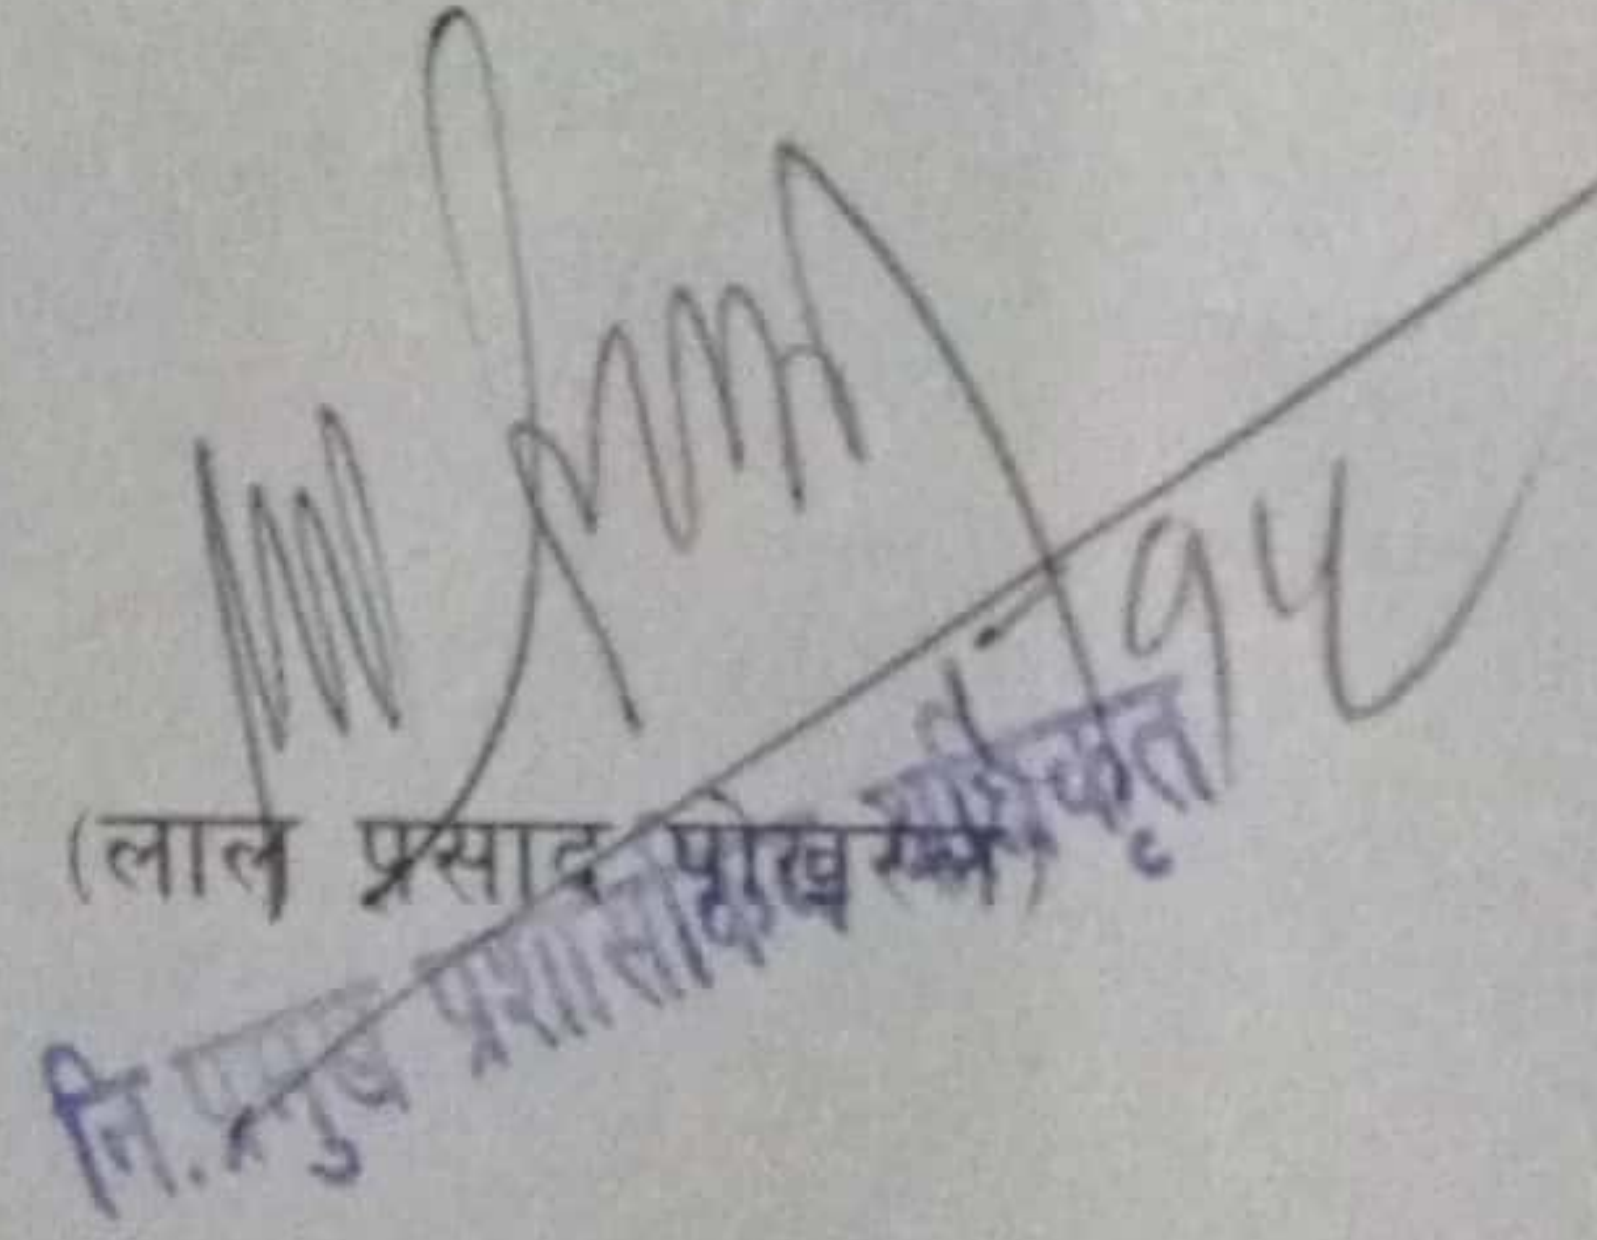 १५
(लाल प्रसाद पोखरेल)
नि. प्रमुख प्रशासकिय अधिकृत